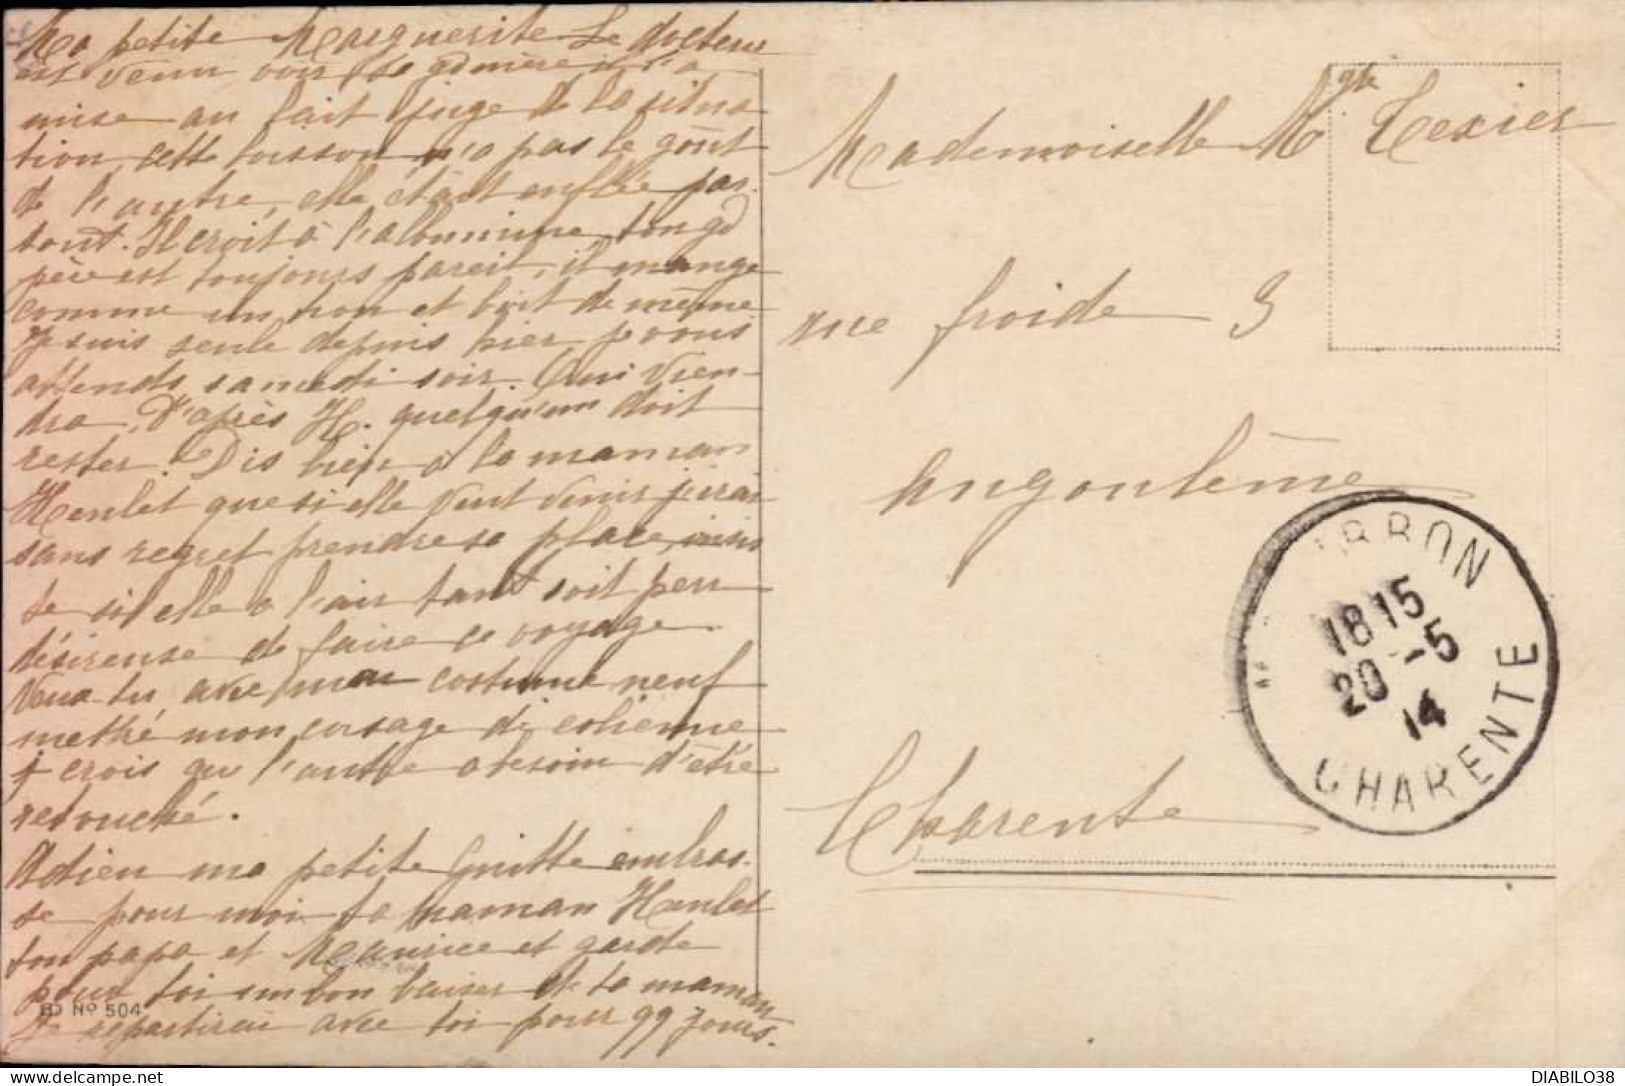 Ma petite Marguerite Le docteur
est venu voir ta gdmère il l'a
mise au fait juge de la situa
tion, cette boisson n'a pas le goût
de l'autre, elle était enflée par-
tout. Il croit à l'albumine, ton gd
père est toujours pareil, il mange
comme un non et boit de même
Je suis seule depuis hier, je vous
attends samedi soir. Qui vien-
dra. D'après H. quelqu'un doit
rester. Dis bien à la maman
Henlet que si elle veut venir j'irai
sans regret prendre sa place, insis
te si elle a l'air tant soit peu
désireuse de faire ce voyage.
Veux-tu avec mon costume neuf
mettre mon corsage de colienne
je crois que l'autre a besoin d'être
retouché.
Adieu ma petite Guitte embras-
se pour moi ta maman Henlet
ton papa et Maurice et garde
pour toi un bon baiser de ta maman
Je repartirai avec toi pour 99 jours.
ED No 504
Mademoiselle Mgte Texier
rue froide 9
Angoulême
Charente
BRON
18 15
20 -5
14
CHARENTE
DIABILO38